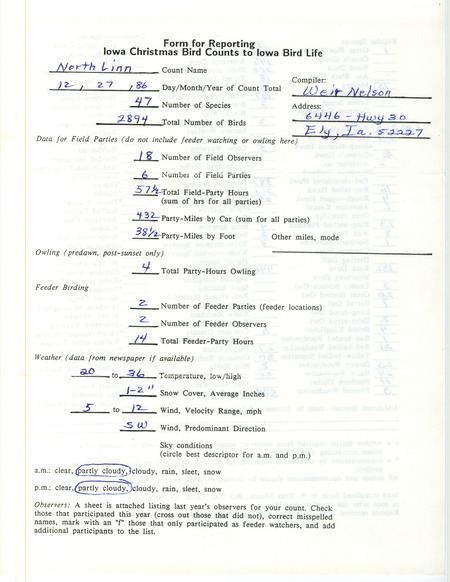 Form for Reporting
Iowa Christmas Bird Counts to Iowa Bird Life
North Linn Count Name
12, 27, 86 Day/Month/Year of Count Total
Compiler:
Weir Nelson
47 Number of Species
Address:
2894 Total Number of Birds
6446 - Hwy 30
Ely, Ia. 52227
Data for Field Parties (do not include feeder watching or owling here)
18 Number of Field Observers
6 Number of Field Parties
57½ Total Field-Party Hours
(sum of hrs for all parties)
432 Party-Miles by Car (sum for all parties)
38½ Party-Miles by Foot Other miles, mode
Owling (predawn, post-sunset only)
4 Total Party-Hours Owling
Feeder Birding
2 Number of Feeder Parties (feeder locations)
2 Number of Feeder Observers
14 Total Feeder-Party Hours
Weather (data from newspaper if available)
20 to 36 Temperature, low/high
1-2" Snow Cover, Average Inches
5 to 12 Wind, Velocity Range, mph
SW Wind, Predominant Direction
Sky conditions
(circle best descriptor for a.m. and p.m.)
a.m.: clear, partly cloudy, cloudy, rain, sleet, snow
p.m.: clear, partly cloudy, cloudy, rain, sleet, snow
Observers: A sheet is attached listing last year's observers for your count. Check
those that participated this year (cross out those that did not), correct misspelled
names, mark with an "f" those that only participated as feeder watchers, and add
additional participants to the list.